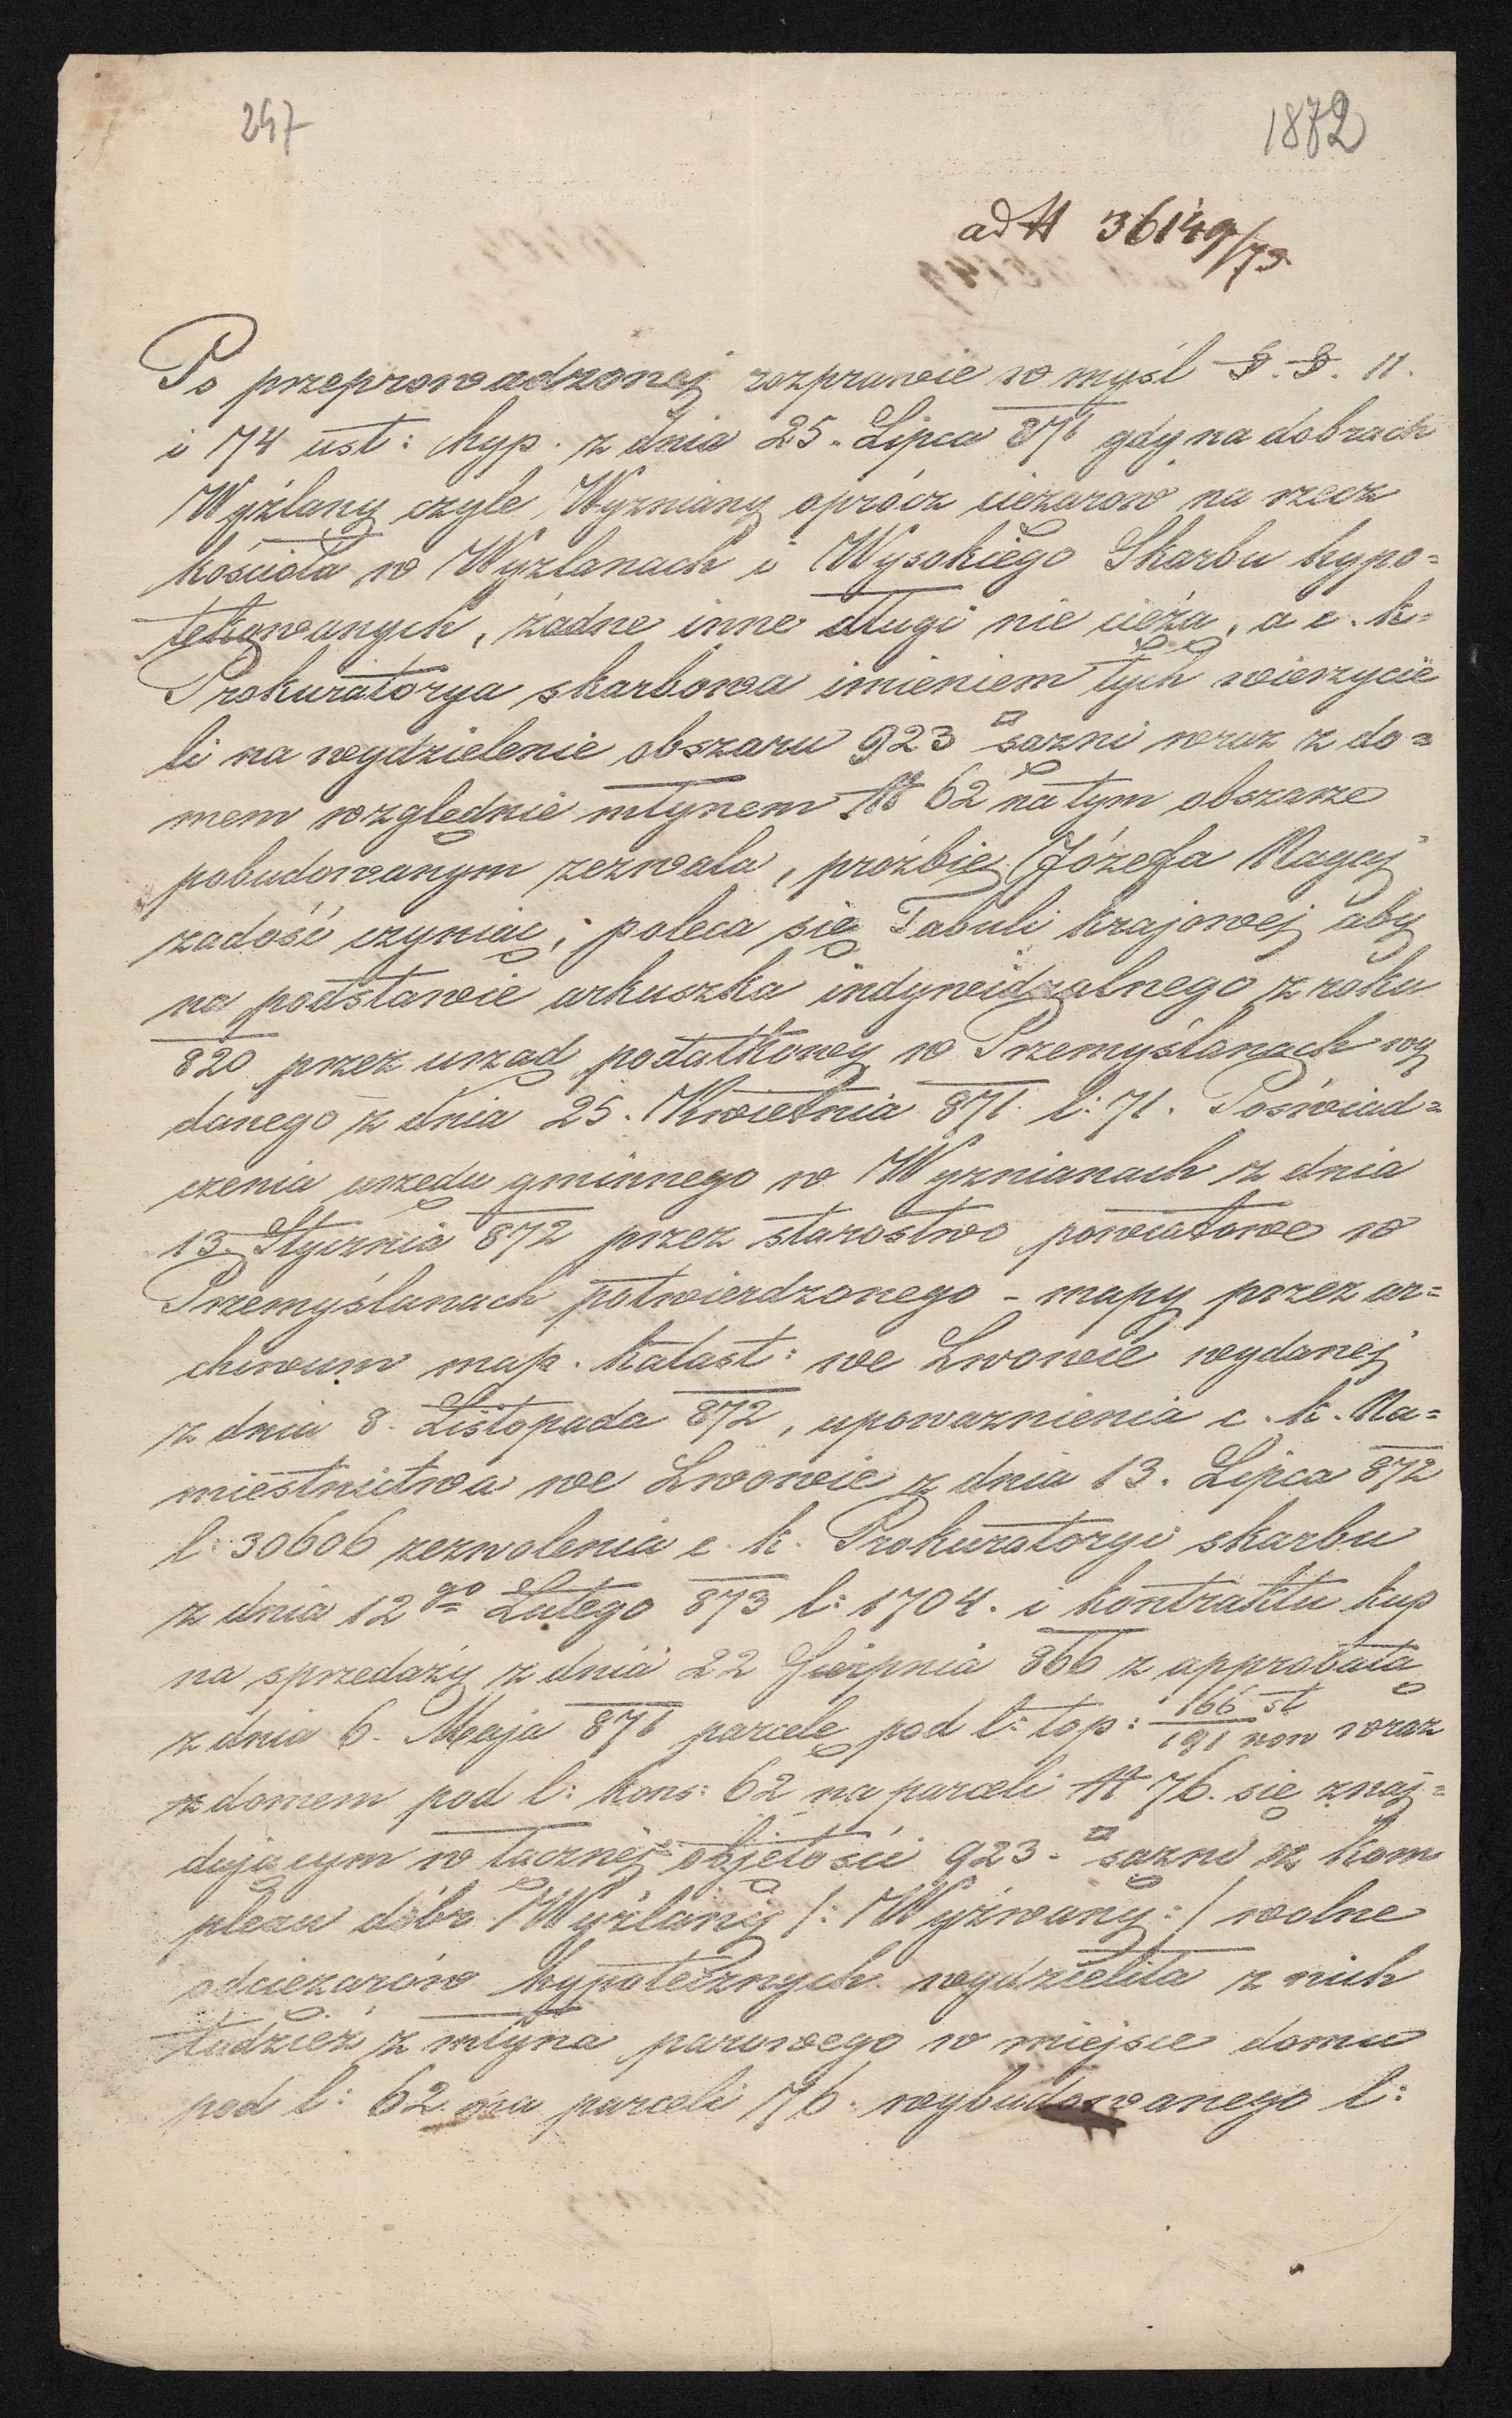 247
1872
ad № 36149/73
Po przeprowadzonej rozprawie w myśl §. §. 11.
i 74 ust: hyp. z dnia 25. Lipca 871 gdy na dobrach
Wyżlany czyle Wyzniany oprócz ciężarow na rzecz
kościoła w Wyżlanach i Wysokiego Skarbu hypo=
tekowanych, żadne inne długi nie cieżą, a c. k.
Prokuratorya skarbowa imieniem tych wierzycie
li na wydzielenie obszaru 923 □ sązni wraz z do=
mem względnie młynem № 62 na tym obszarze
pobudowanym zezwala, prośbie Józefa Nagaj
zadość czyniąc, poleca się Tabuli krajowej aby
na podstawie arkuszka indywidualnego z roku
820 przez urząd podatkowy w Przemyślanach wy
danego z dnia 25. Kwietnia 871 l: 71. Poświad=
czenia urzędu gminnego w Wyznianach z dnia
13. Stycznia 872 przez starostwo powiatowe w
Przemyślanach potwierdzonego - mapy przez ar=
chiwum map. katast: we Lwowie wydanej
z dnia 8. Listopada 872, upoważnienia c. k. Na=
miestnictwa we Lwowie z dnia 13. Lipca 872
l: 30606 zezwolenia c. k. Prokuratoryi skarbu
z dnia 12go Lutego 873 l: 1704. i kontraktu kup
na sprzedaży z dnia 22 Sierpnia 866 z approbatą
z dnia 6. Maja 871 parcelę pod l: top: 166 st / 191 now wraz
z domem pod l: kons: 62 na parceli № 76. się znaj=
dującym w łącznej objętości 923. □ sązni z kom
plexu dóbr Wyżlany /: Wyżniany :/ wolne
od ciężarów hypotecznych wydzieliła z nich
tudzież z młyna parowego w miejsce domu
pod l: 62 na parceli 76. wybudowanego l: